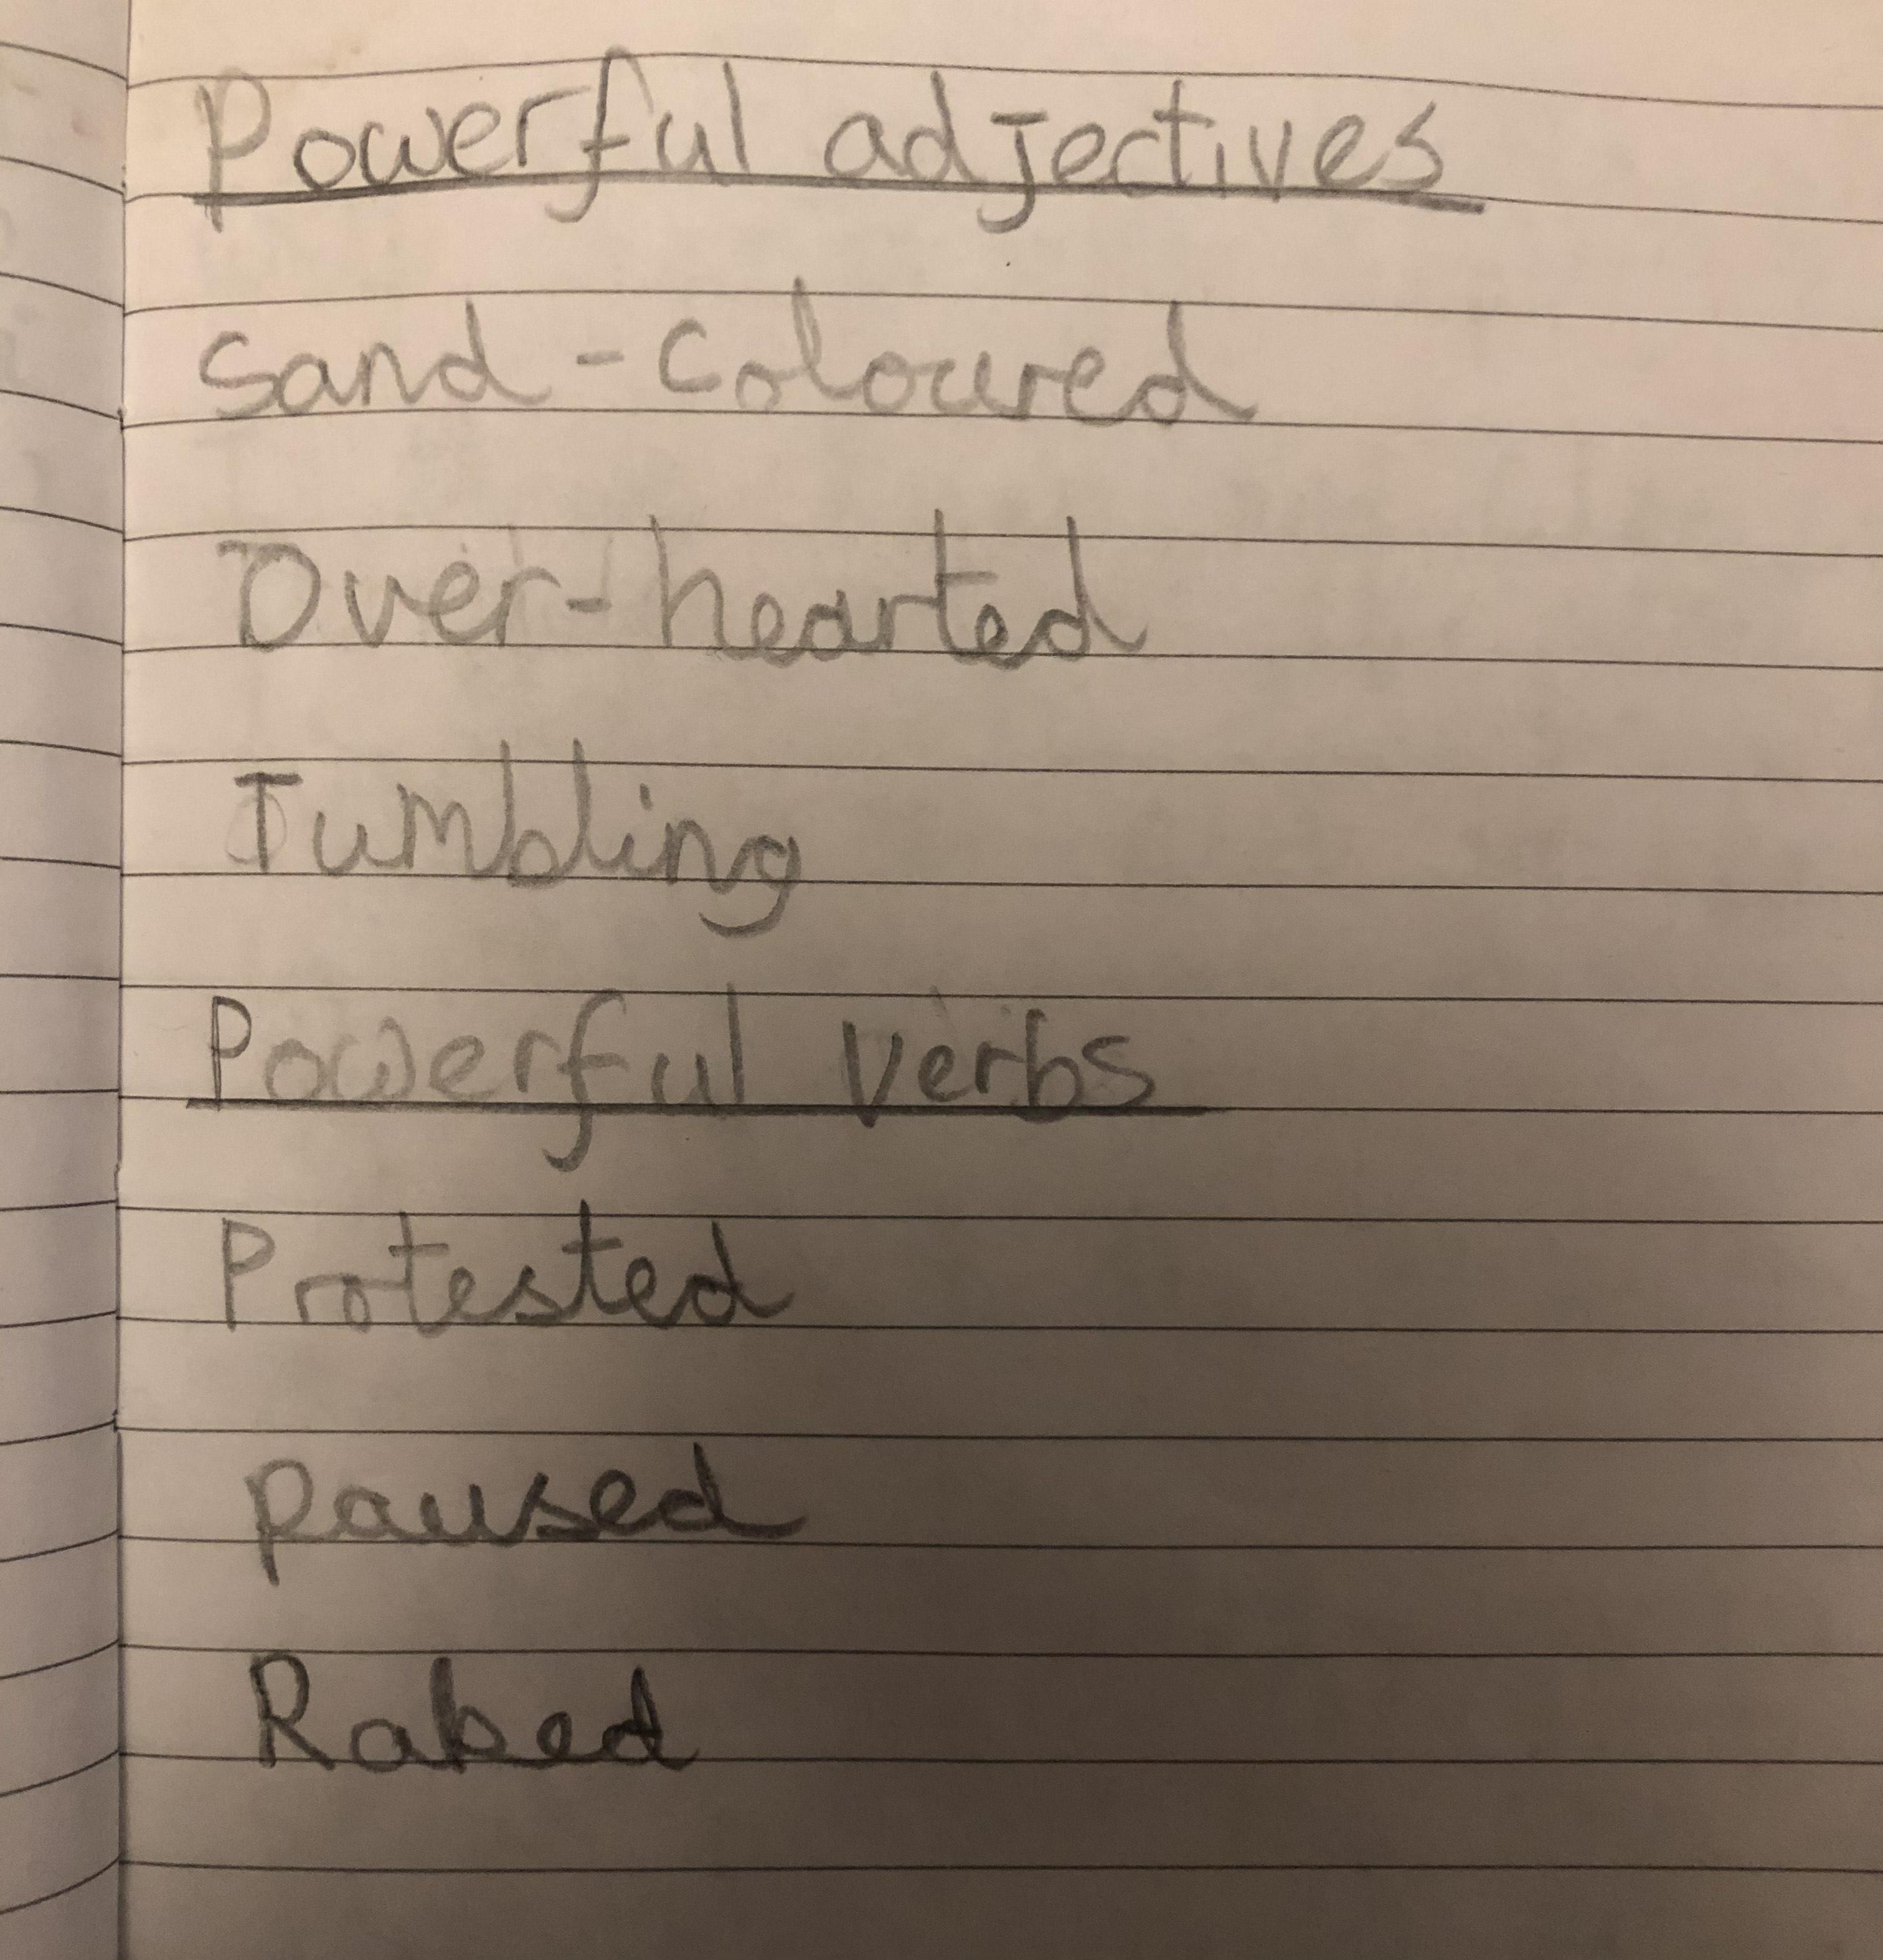 Powerful adjectives
Sand-coloured
Over-hearted
Tumbling
Powerful verbs
Protested
paused
Raked